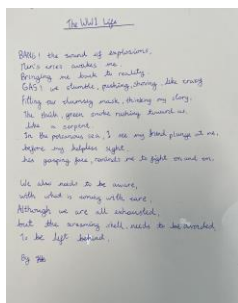 The WW1 Life
BANG! the sound of explosions,
Men's cries awakes me,
Bringing me back to reality.
GAS! we stumble, pushing, shoving, like crazy
Fitting our clumsy mask, thinking my
The thick, green smoke rushing toward us,
like a serpent.
In the poisonous sea, I see my friend plunge at me,
before my helpless sight,
his gasping face, reminds me to fight on and on.
We also needs to be aware,
with what is away with care,
Although we are all exhausted,
but the screaming shell, needs to be avoided,
To be left behind,
By